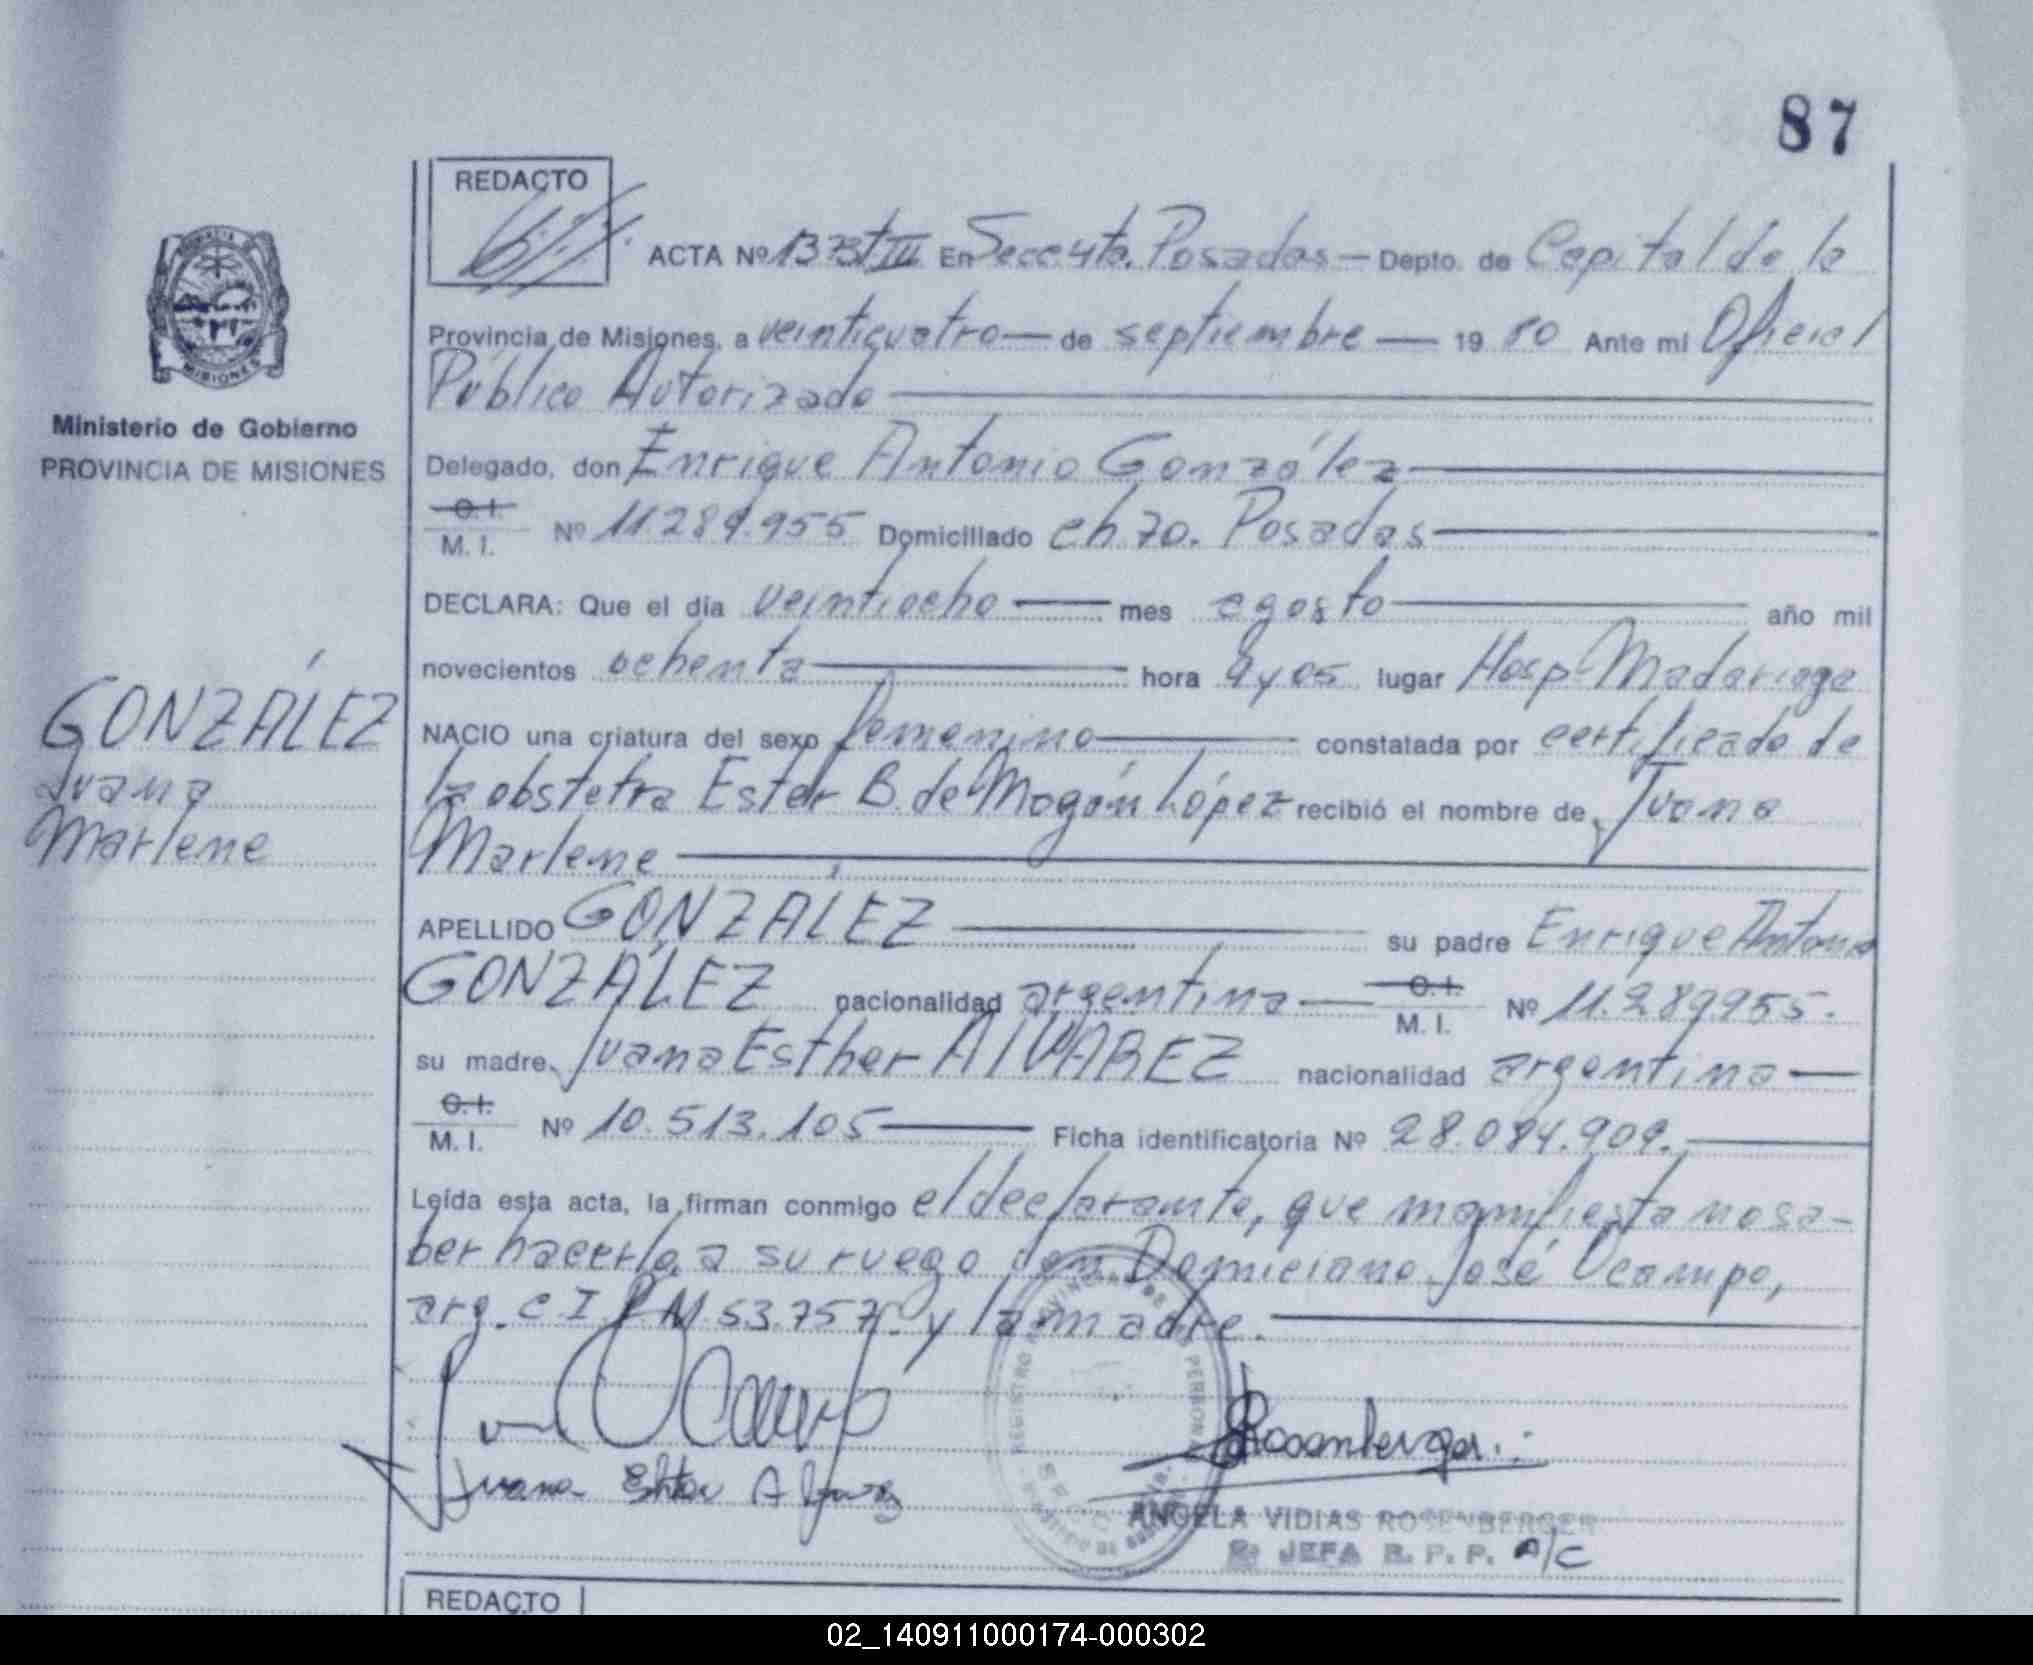 87
REDACTO
ACTA Nº 1373 t III En Secc 4ta. Posadas — Depto. de Capital de la
Provincia de Misiones, a veinticuatro — de septiembre — 19 80 Ante mi Oficial
Público Autorizado
Ministerio de Gobierno
PROVINCIA DE MISIONES
MISIONES
Delegado, don Enrique Antonio González
C.I.
M. I. Nº 11.289.955 Domiciliado ch. 70. Posadas
DECLARA: Que el día veintiocho — mes agosto — año mil
novecientos ochenta — hora 9 y 05 lugar Hosp. Madariaga
GONZÁLEZ
Juana
Marlene
NACIO una criatura del sexo femenino — constatada por certificado de
la obstetra Ester B. de Mogán López recibió el nombre de, Juana
Marlene
APELLIDO GONZÁLEZ — su padre Enrique Antonio
GONZÁLEZ nacionalidad argentina — C.I.
M. I. Nº 11.289.955.
su madre, Juana Esther ALVAREZ nacionalidad argentina —
C.I.
M. I. Nº 10.513.105 — Ficha identificatoria Nº 28.084.909.
Leída esta acta, la firman conmigo el declarante, que manifiesta no sa-
ber hacerlo, a su ruego don Domiciano José Ocampo,
arg. C I. P M. 53.757. y la madre.
REGISTRO PROVINCIAL DE LAS PERSONAS
Juana Ehter Alvarez
Rosenberger
ANGELA VIDIAS ROSENBERGER
JEFA R. P. P. A/C
REDACTO
02_140911000174-000302